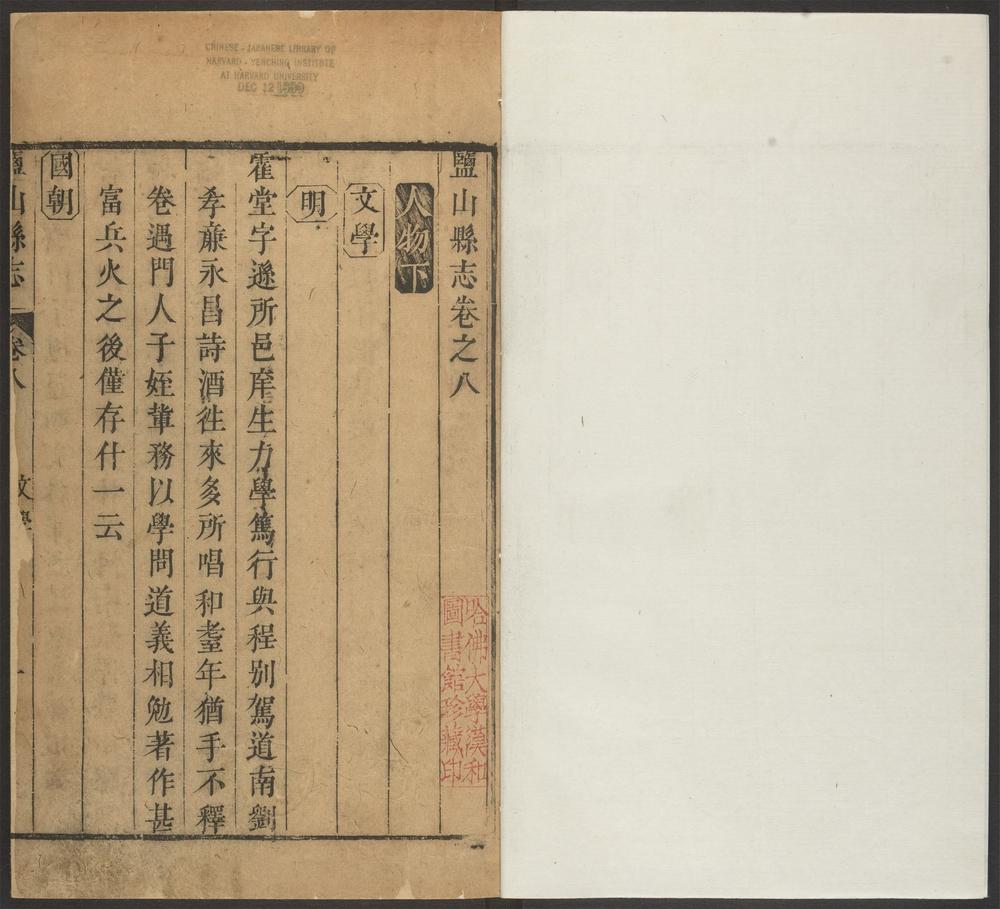 CHINESE - JAPANESE LIBRARY OF
HARVARD - YENCHING INSTITUTE
AT HARVARD UNIVERSITY
DEC 12
鹽山縣志卷之八
哈佛大學漢和
圖書館珍藏印
人物下
文學
明
霍堂字遜所邑庠生力學篤行與程別駕道南劉
孝廉永昌詩酒徃來多所唱和耋年猶手不釋
卷遇門人子姪軰務以學問道義相勉著作甚
富兵火之後僅存什一云
國朝
鹽山縣志 卷八 文學 一